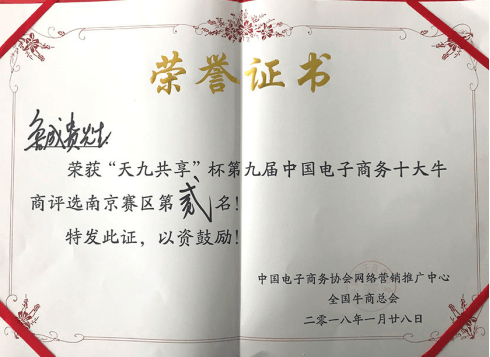 荣誉证书
成贵先生
荣获“天九共享”杯第九届中国电子商务十大牛
商评选南京赛区第贰名！
特发此证，以资鼓励！
中国电子商务协会网络营销推广中心
全国牛商总会
二零一八年一月廿八日